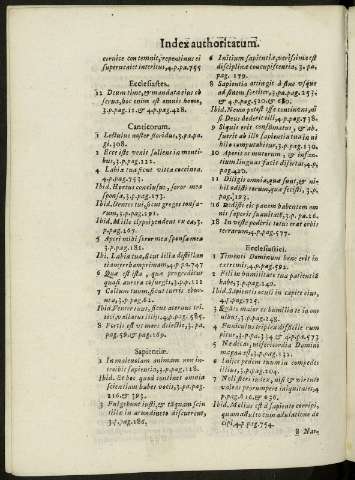 Index authoritatum.
cervice contemnit, repentinus ei
superveniet interitus, 4.p.pa.755
Ecclesiastes.
12 Deum time, & mandata eius ob
serva, hoc enim est omnis homo,
3.p.pag.12, & 4.p.pag.428.
Canticorum.
1 Lectulus noster floridus, 3.p.pa.
gi.308.
2 Ecce iste venit saliens in monti-
bus, 3.p.pag.122.
4 Labia tua sicut vitta coccinea,
4.p.pag.753.
Ibid. Hortus conclusus, soror mea
sponsa, 3.p.pag.173.
Ibid. Dentes tui, sicut greges tonsa-
rum, 3.p.pag.291.
Ibid. Mille clypei pendent ex ea, 3.p.
pag.267.
5 Aperi mihi soror mea sponsa mea
3.p.pag.181.
Ibi. Labia tua, sicut lilia distillan
tia myrrham primam, 4.p.pa.747
6 Quæ est ista, quæ progreditur
quasi aurora consurgens, 3.p.pa.112
7 Collum tuum, sicut turris ebur-
nea, 3.p.pag.61.
Ibid. Venter tuus, sicut acervus tri-
tici, vallatus liliis, 4.p.pag.585.
8 Fortis est vt mors dilectio, 3.pa.
pag.56, & pag.169.
Sapientiæ.
1 In malevolam animam non in-
troibit sapientia, 3.p.pag.128.
Ibid. Et hoc quod continet omnia
scientiam habet vocis, 3.p.pag.
216, & 393.
3 Fulgebunt iusti, & tãquam scin
tillæ in arundineto discurrent,
3.p.pag.286.
6 Initium sapientiæ, verissima est
disciplinæ concupiscentia, 3.pa.
pag.179.
8 Sapientia attingit à fine vsque
ad finem fortiter, 3.p.pa.253,
& 4.p.pag.520, & 680.
Ibid. Nemo potest esse continens, ni
si Deus dederit illi, 4.p.pag.738.
9 Si quis erit consummatus, & ab-
fuerit ab illo sapientia tua in ni
hilũ computabitur, 3.p.pag.130.
10 Aperis os mutorum, & infan-
tium linguas disertas, 4.p.pag.
420.
11 Diligis omnia, quæ sunt, & ni-
hil odisti eorum, quæ fecisti, 3.p.
pag.193.
16 Dedisti eis panem habentem om
nis saporis suavitatẽ, 3.p.pa.26.
18 In veste poderis totus erat orbis
terrarum, 4.p.pag.577.
Ecclesiastici.
1 Timenti Dominum bene erit in
extremis, 4.p.pag.592.
2 Fili in humilitate tua patientiã
habe, 3.p.pag.140.
Ibid. Sapientis oculi in capite eius,
4.p.pag.725.
3 Quãto maior es humilia te in om
nibus, 3.p.pag.248.
4 Funiculus triplex difficile rum
pitur, 3.p.pa.334 & 4.p.pa.573
5 Ne dicas, misericordia Domini
magna est, 3.p.pag.232.
6 Iniice pedem tuum in compedes
illius, 3.p.pag.204.
7 Noli fieri iudex, nisi & virtute
valeas prorumpere iniquitates,
4.p.pag.616, & 630.
Ibid. Melius est à sapiente corripi,
quam adulto cum adulatione de
cipi, 4.p.pag.754.
8 Nar-